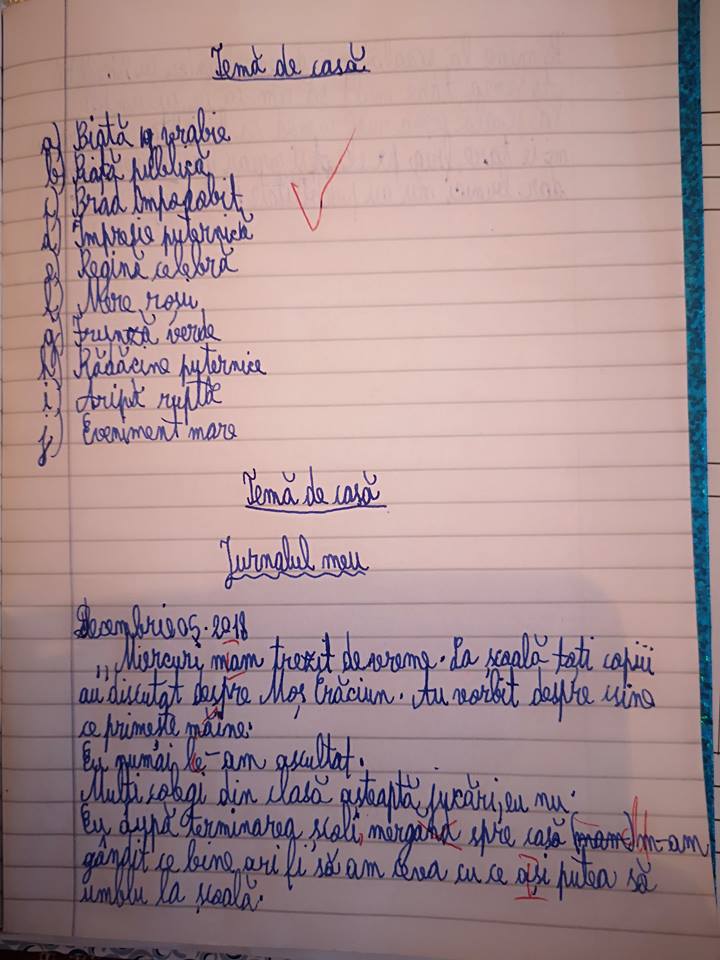 Temă de casă
a) Biată vrabie
b) Piată publică
c) Brad împopobit
d) Impresie puternică
e) Regină celebră
f) Mere roșu
g) Frunză verde
h) Rădăcine puternice
i) Aripă ruptă
j) Eveniment mare
Temă de casă
Jurnalul meu
Decembrie 05.2018
,,Miercuri mam trezit devreme. La școală toți copiii
au discutat despre Moș Crăciun. Au vorbit despre cine
ce primește mâine.
Eu numai le-am ascultat.
Mulți colegi din clasă așteaptă jukări, eu nu.
Eu după terminarea scoli, mergând spre casă (mam) m-am
gândit ce bine ari fi, să am ceva cu ce ași putea să
umblu la școală.